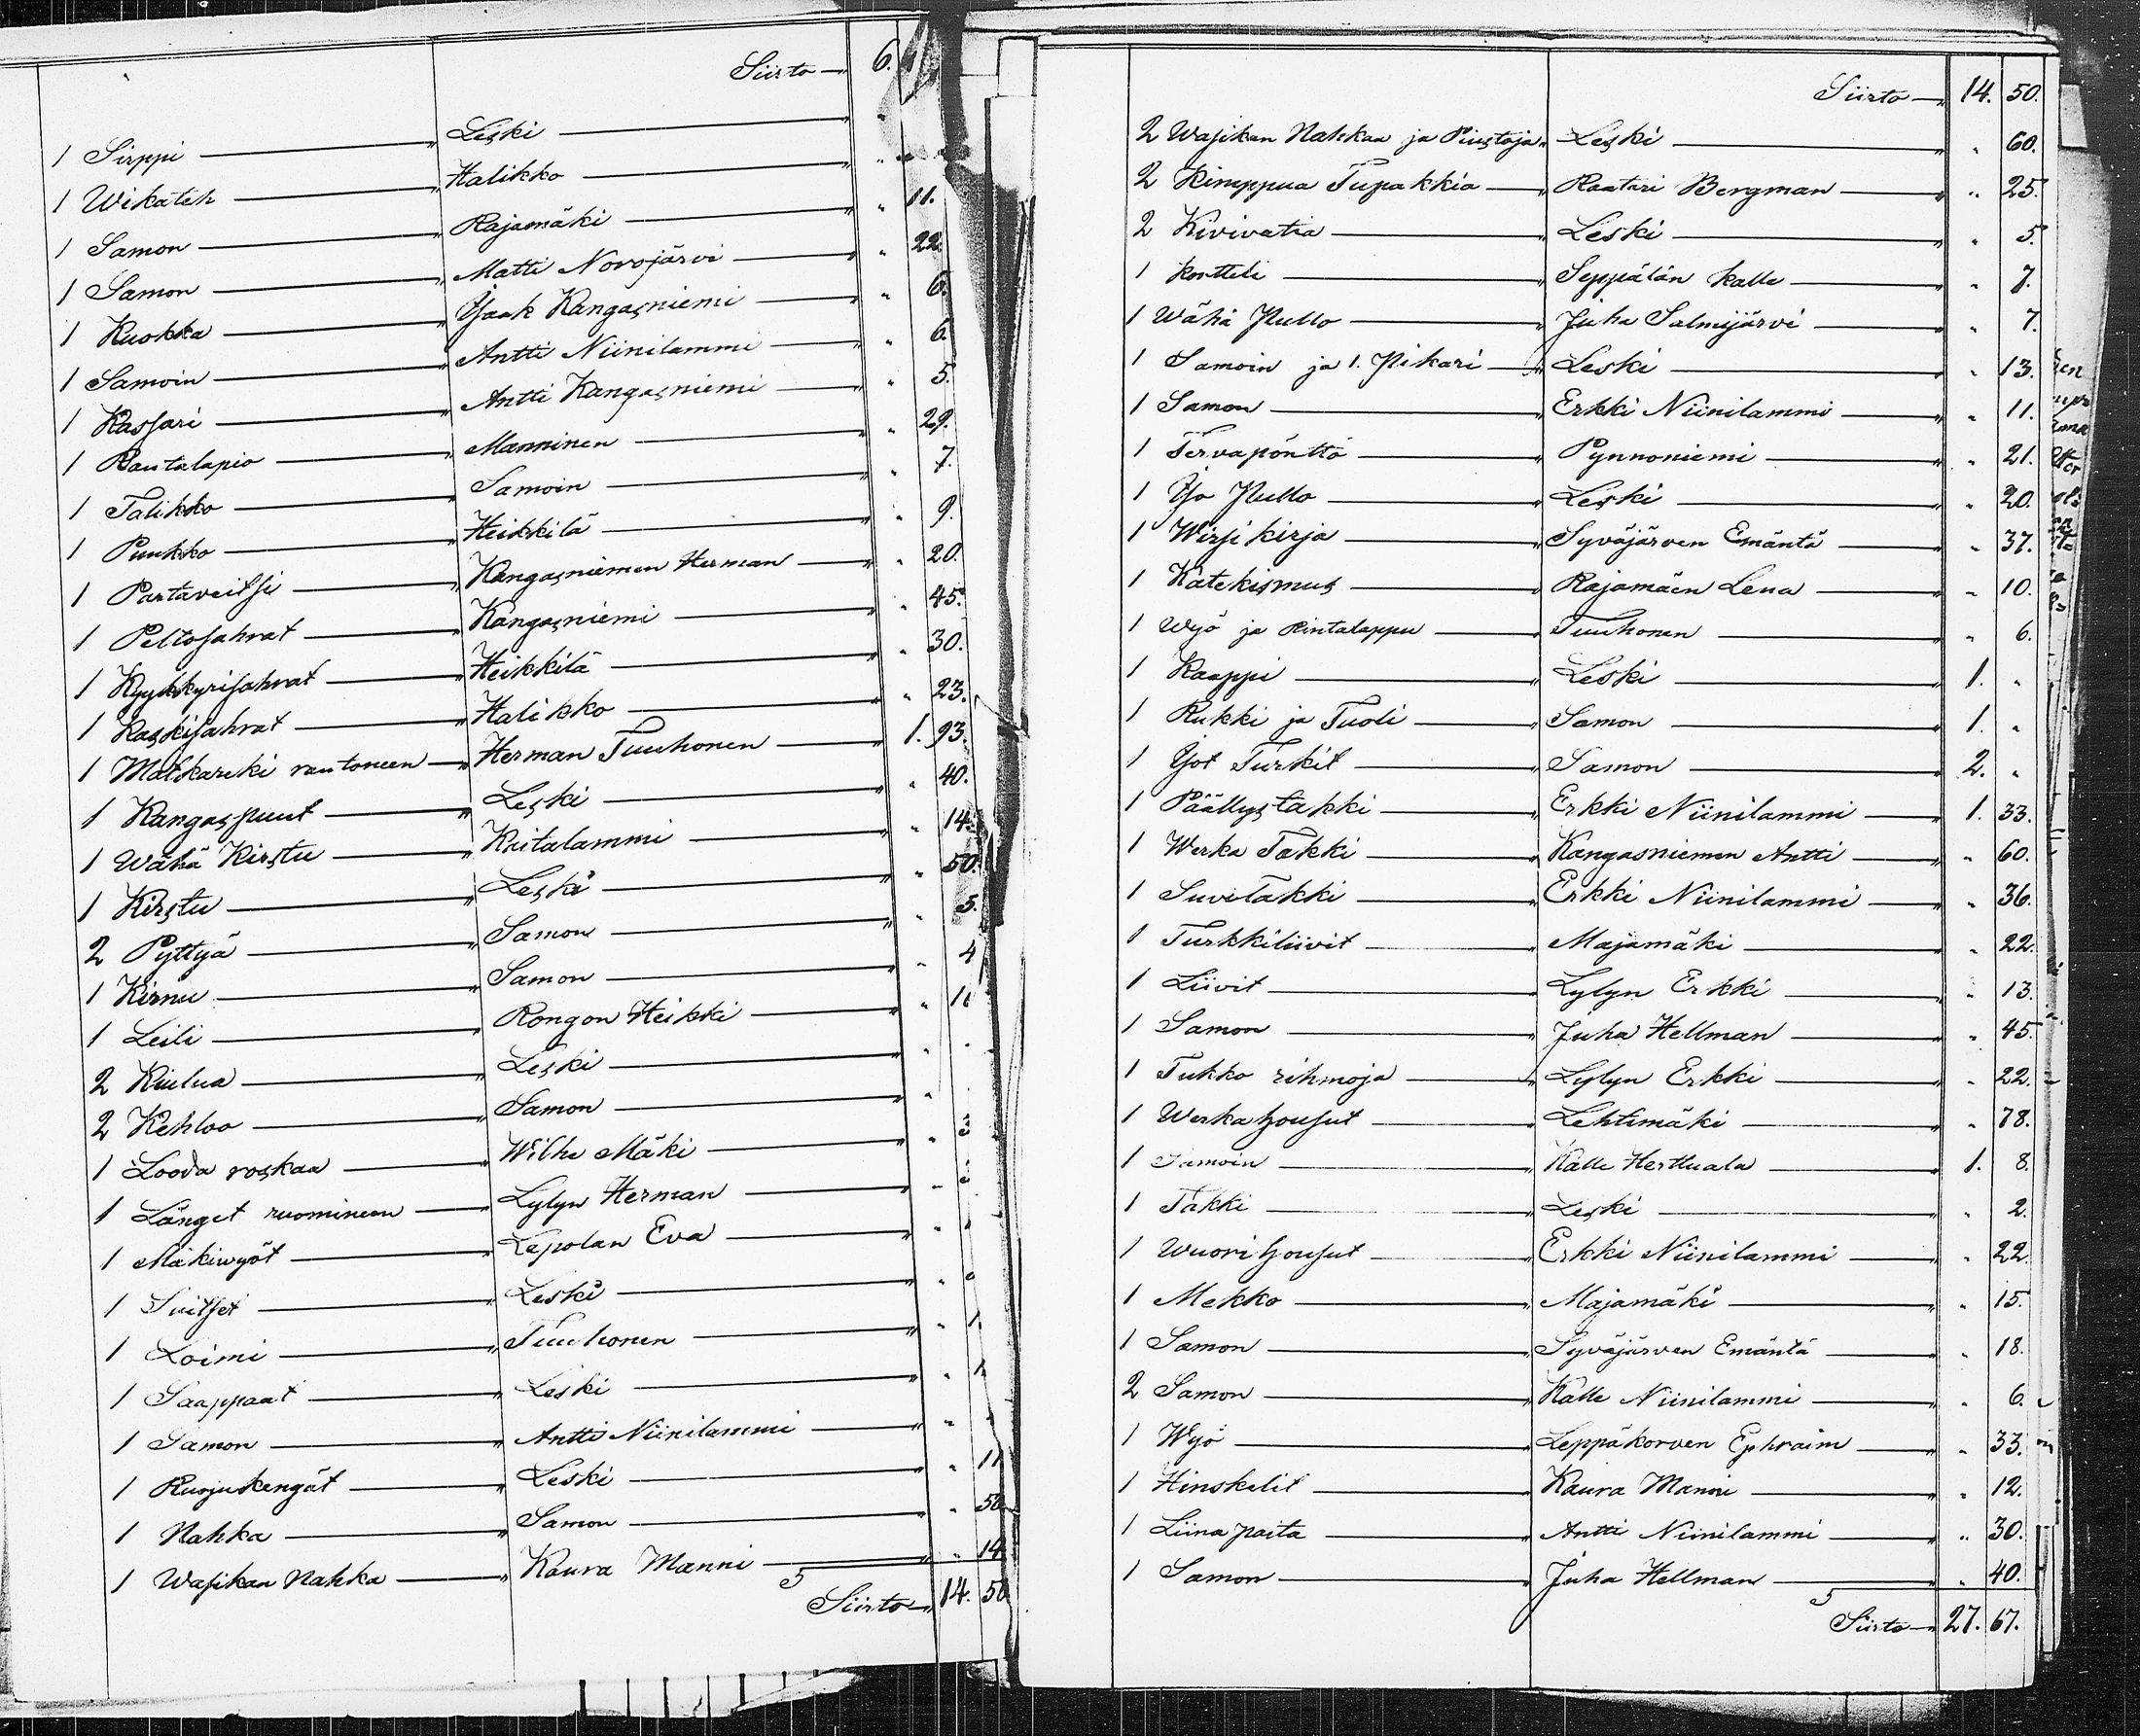 Siirto 6.
1 Sirppi Leski "
1 Wikateh Halikko "
1 Samon Rajamäki " 11.
1 Samon Matti Norojärvi " 22.
1 Kuokka Isaak Kangasniemi " 6.
1 Samoin Antti Niinilammi " 6.
1 Kassari Antti Kangasniemi " 5.
1 Rautalapio Manninen " 29.
1 Talikko Samoin " 7.
1 Puukko Heikkilä " 9.
1 Partaveitsi Kangasniemen Herman " 20.
1 Peltosahrat Kangasniemi " 45.
1 Kyykkyrisahrat Heikkilä " 30.
1 Kaskisahrat Halikko " 23.
1 Matkareki rautoneen Herman Tuuhonen 1. 93.
1 Kangaspuut Leski " 40.
1 Wähä Kirstu Kuitalammi " 14.
1 Kirstu Leski " 50.
2 Pyttyä Samon " 5.
1 Kirnu Samon " 4
1 Leili Rongon Heikki "
2 Kiulua Leski "
2 Kehloo Samon "
1 Looda roskaa Wilhe Mäki "
1 Länget ruomineen Lylyn Herman "
1 Mäkiwyöt Lepolan Eva "
1 Suitset Leski "
1 Loimi Tuuhonen "
1 Saappaat Leski "
1 Samon Antti Niinilammi "
1 Ruojukengät Leski " 11
1 Nahka Samon " 50
1 Wasikan Nahka Kaura Manni " 14
Siirto 14. 50
Siirto 14. 50.
2 Wasikan Nahkaa ja Piustoja Leski " 60.
2 Kimppua Tupakkia Raatari Bergman " 25.
2 Kivivatia Leski " 5.
1 Kortteli Seppälän Kalle " 7.
1 Wähä Pullo Juha Salmijärvi " 7.
1 Samoin ja 1. Pikari Leski " 13.
1 Samon Erkki Niinilammi " 11.
1 Tervapönttö Pynnoniemi " 21.
1 Iso Pullo Leski " 20.
1 Wirsikirja Syväjärven Emäntä " 37.
1 Katekismus Rajamäen Lena " 10.
1 Wyö ja Rintalappu Tuuhonen " 6.
1 Kaappi Leski 1. "
1 Rukki ja Tuoli Samon 1. "
1 Isot Turkit Samon 2. "
1 Päällystakki Erkki Niinilammi 1. 33.
1 Werka Takki Kangasniemen Antti " 60.
1 Suvitakki Erkki Niinilammi " 36.
1 Turkkiliivit Majamäki " 22.
1 Liivit Lylyn Erkki " 13.
1 Samon Juha Hellman " 45
1 Tukko rihmoja Lylyn Erkki " 22.
1 Werkahousut Lehtimäki " 78.
1 Samoin Kalle Herttuala 1. 8.
1 Takki Leski " 2.
1 Wuorihousut Erkki Niinilammi " 22.
1 Mekko Majamäki " 15.
1 Samon Syväjärven Emäntä " 18.
2 Samon Kalle Niinilammi " 6.
1 Wyö Leppäkorven Ephraim " 33.
1 Hinskelit Kaura Manni " 12.
1 Liina paita Antti Niinilammi " 30.
1 Samon Juha Hellman " 40.
Siirto 27. 67.